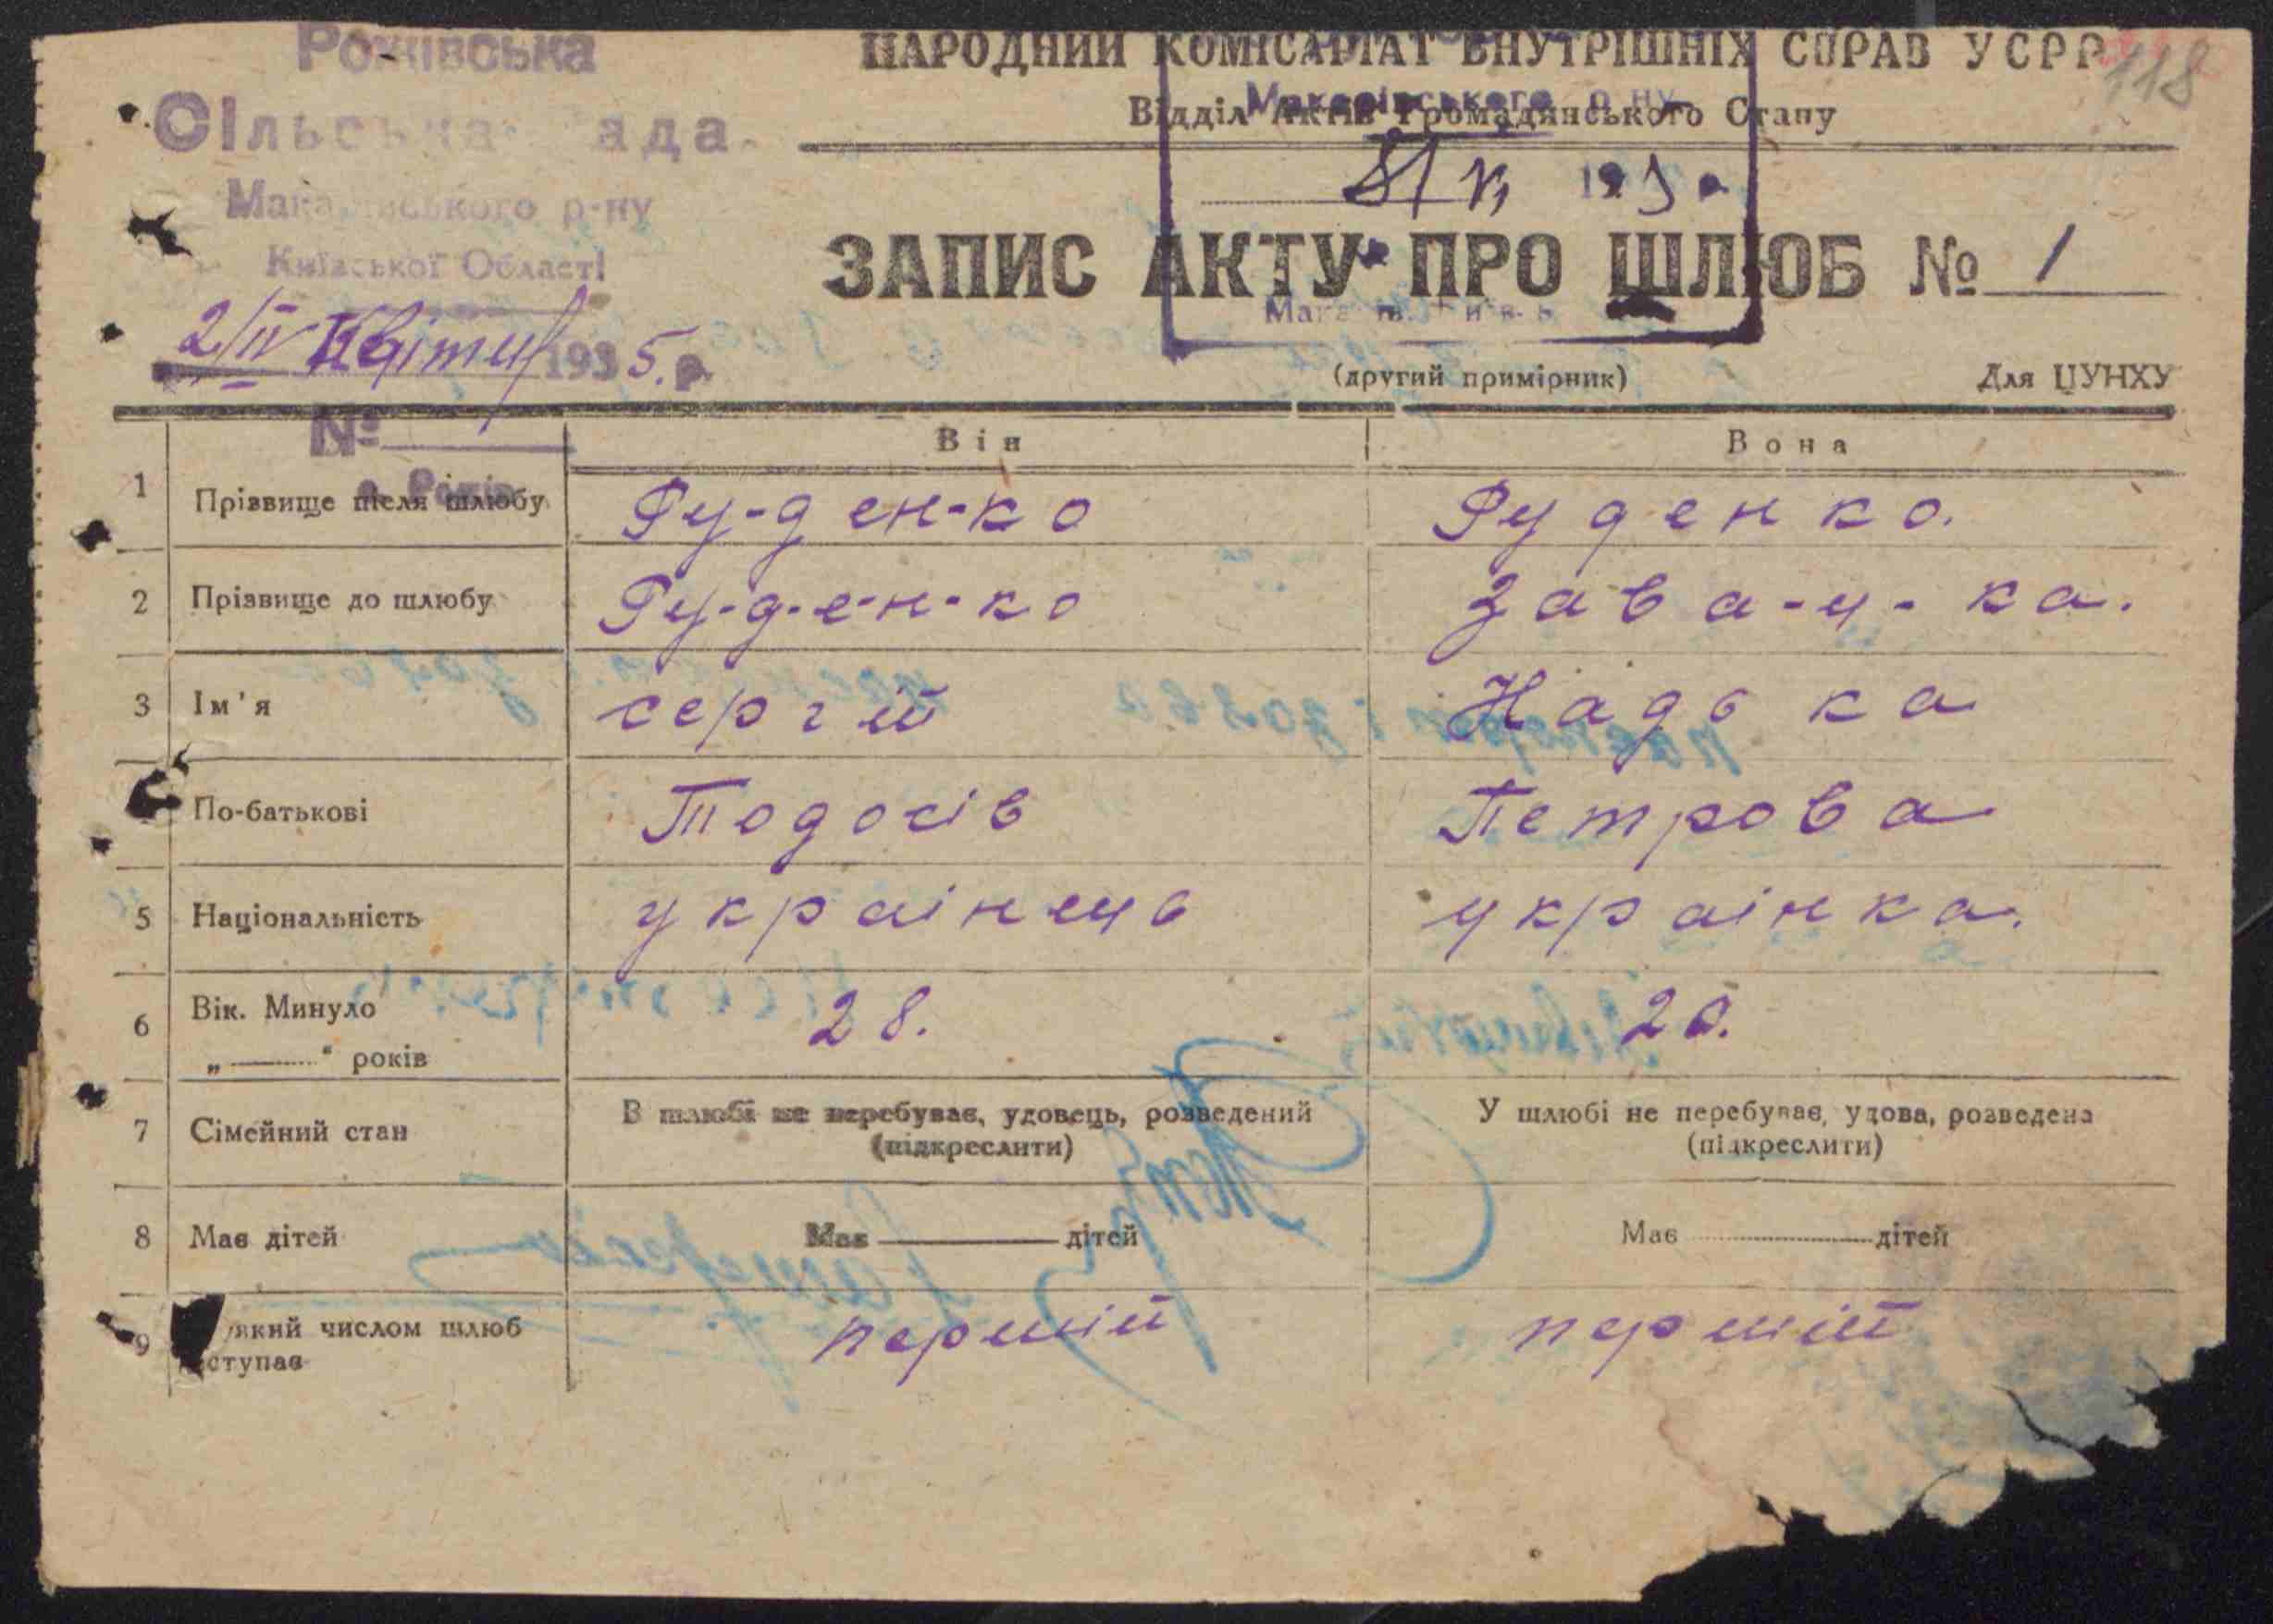 Рожівська
Сільська Рада
Макарівського р-ну
Київської Області
2/IV Квітня 1935.р.
№
с. Рожів
НАРОДНИЙ КОМІСАРІАТ ВНУТРІШНІХ СПРАВ УСРР
118
Відділ Актів Громадянського Стану
Макарівського р-ну
ЗАПИС АКТУ ПРО ШЛЮБ № 1
(другий примірник)
Для ЦУНХУ
Він Вона
1 Прізвище після шлюбу Ру-ден-ко Руденко.
2 Прізвище до шлюбу Ру-д-е-н-ко Зава-ц-ка.
3 Ім'я сергій Надька
По-батькові Тодосів Петрова
5 Національність українець українка.
6 Вік. Минуло 28. 20.
„ “ років
7 Сімейний стан В шлюбі не перебуває, удовець, розведений У шлюбі не перебуває, удова, розведена
(підкреслити) (підкреслити)
8 Має дітей Має дітей Має дітей
9 який числом шлюб перший перший
вступає